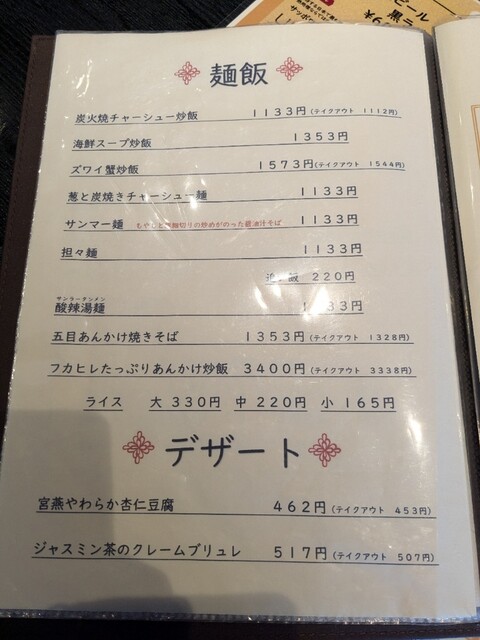 麺飯
炭火焼チャーシュー炒飯 1133円(テイクアウト 1112円)
海鮮スープ炒飯 1353円
ズワイ蟹炒飯 1573円(テイクアウト 1544円)
葱と炭焼きチャーシュー麺 1133円
サンマー麺 もやしと 細切りの炒めがのった醤油汁そば 1133円
担々麺 1133円
追い飯 220円
サンラータンメン
酸辣湯麺 33円
五目あんかけ焼きそば 1353円(テイクアウト 1328円)
フカヒレたっぷりあんかけ炒飯 3400円(テイクアウト 3338円)
ライス 大 330円 中 220円 小 165円
デザート
宮燕やわらか杏仁豆腐 462円(テイクアウト 453円)
ジャスミン茶のクレームブリュレ 517円(テイクアウト 507円)